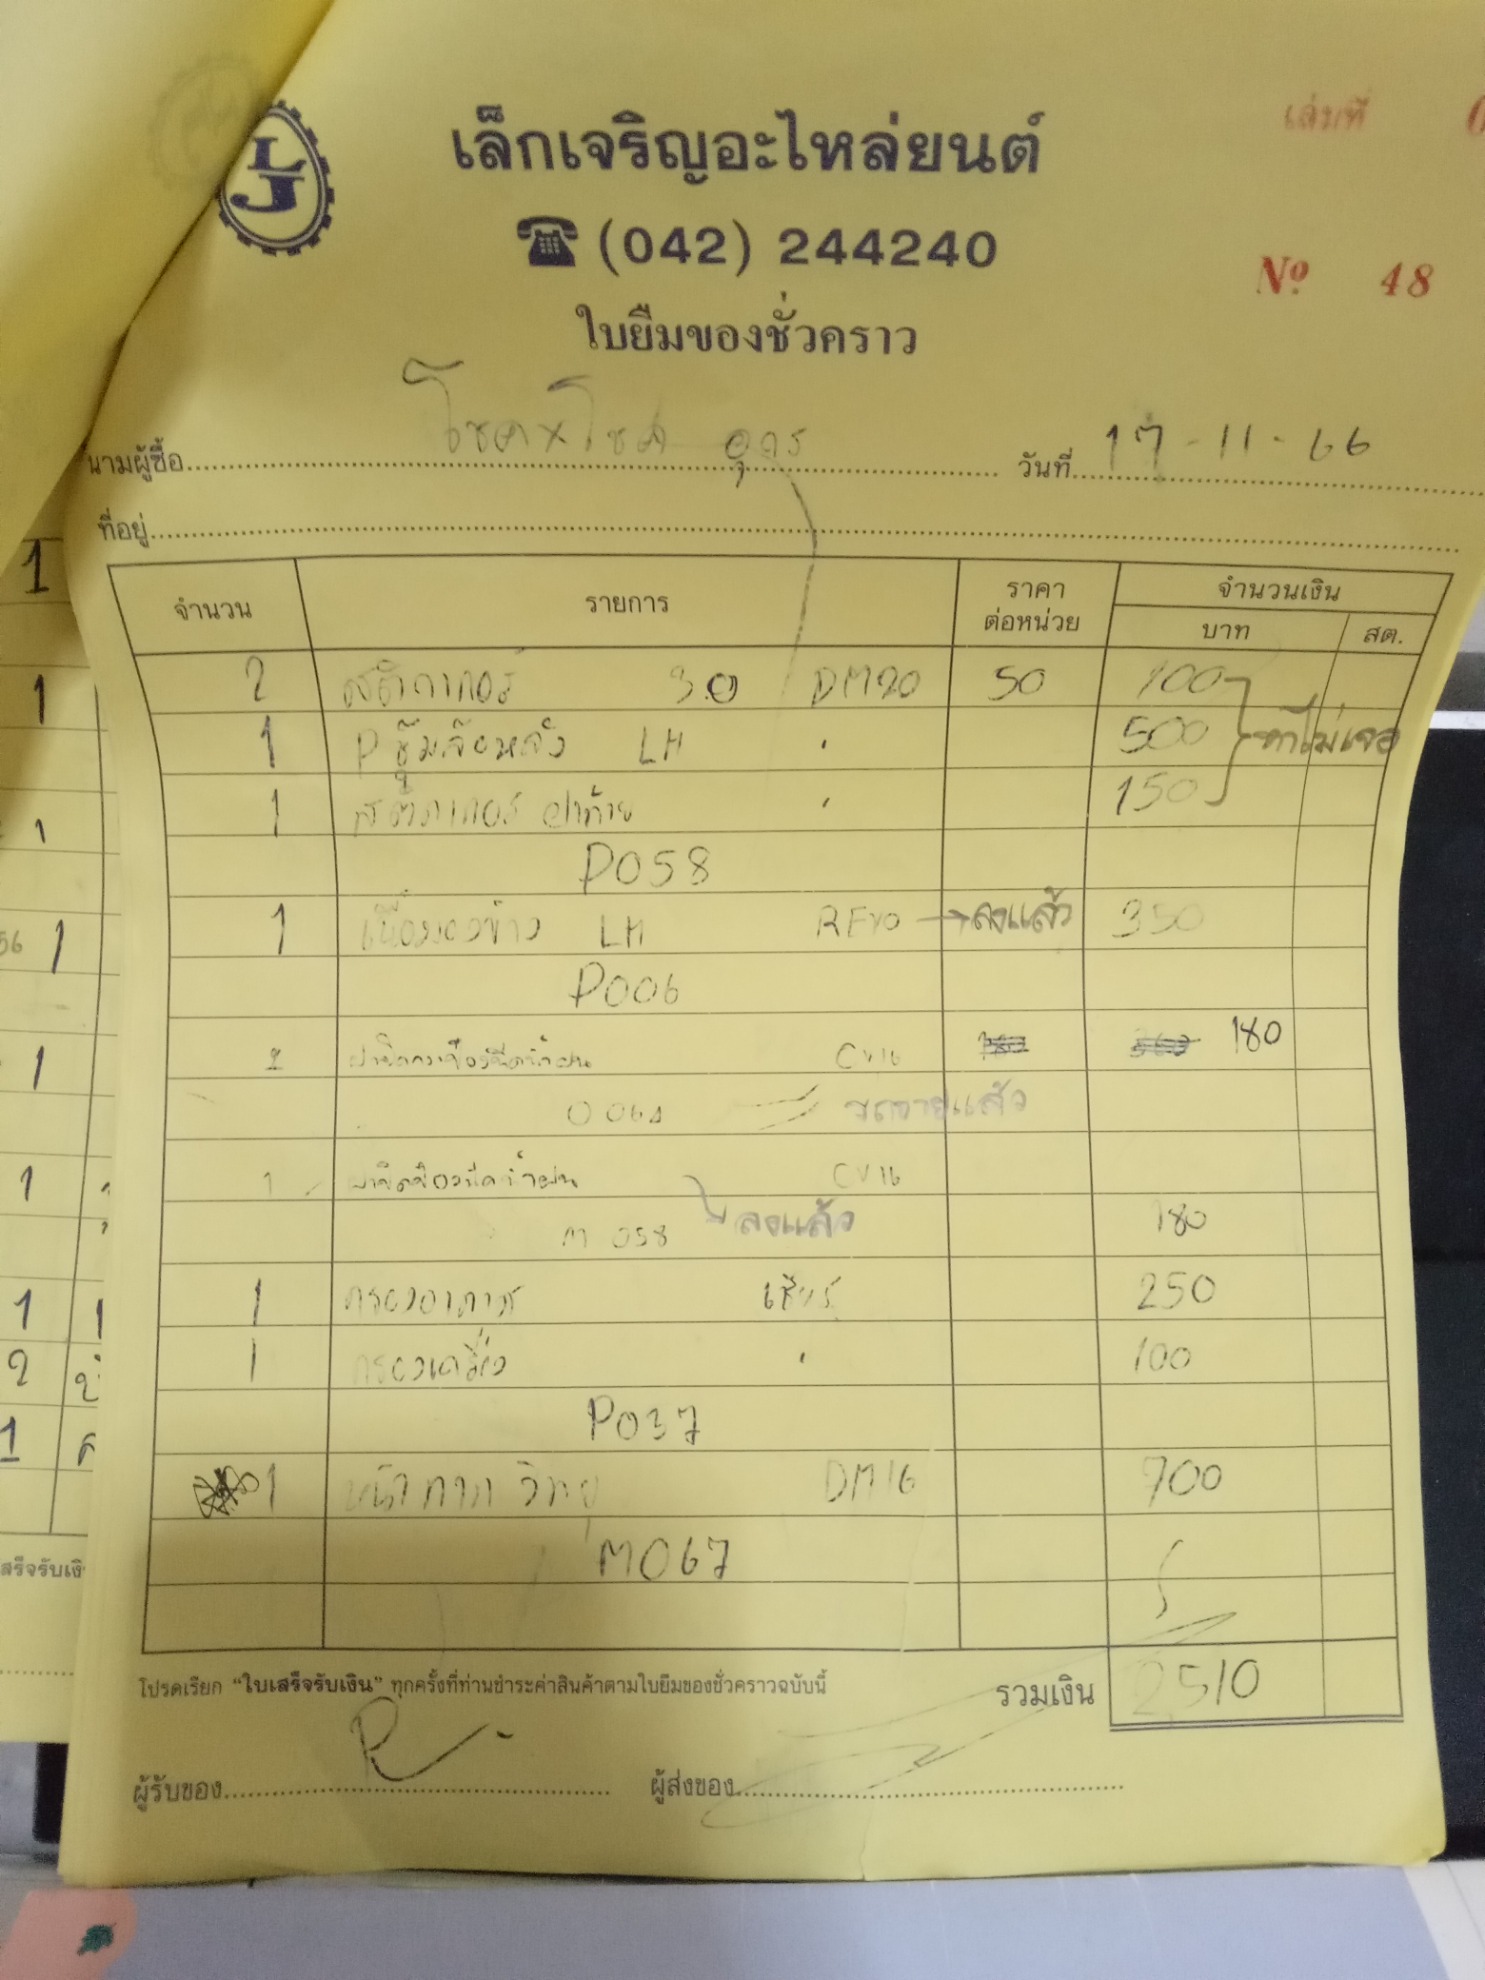 LJ
เล็กเจริญอะไหล่ยนต์
เล่มที่ 0
☎ (042) 244240
Nº 48
ใบยืมของชั่วคราว
นามผู้ซื้อ โชคxโชค อุดร วันที่ 17-11-66
ที่อยู่
จำนวน รายการ ราคาต่อหน่วย จำนวนเงิน
บาท สต.
2 สติกเกอร์ 3.0 DM20 50 100
1 P ซุ้มล้อหลัง LH " 500 หาไม่เจอ
1 สติกเกอร์ ฝาท้าย " 150
P058
1 LH REVO ลงแล้ว 350
P006
CV16 180
006
1 CV16
M 058 ลงแล้ว 180
1 กรองอากาศ เชียร์ 250
1 กรองเครื่อง " 100
P037
1 หน้ากาก วิทยุ DM16 700
M067
โปรดเรียก “ใบเสร็จรับเงิน” ทุกครั้งที่ท่านชำระค่าสินค้าตามใบยืมของชั่วคราวฉบับนี้ รวมเงิน 2510
ผู้รับของ ผู้ส่งของ